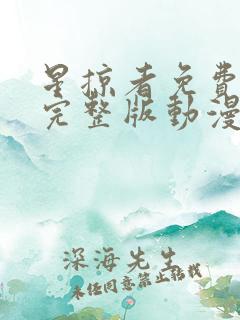 星掠者免費
完整版動漫
深海先生
未經同意禁止轉載